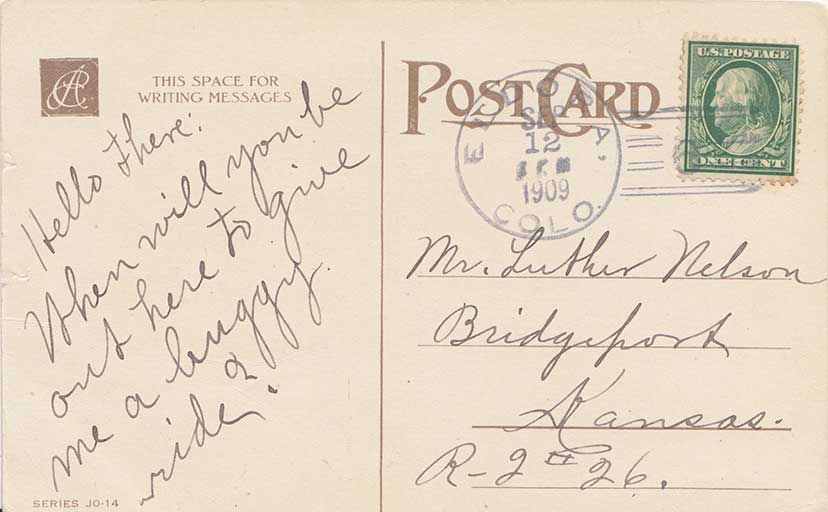 THIS SPACE FOR
WRITING MESSAGES
Hello there:
When will you be
out here to give
me a buggy
ride?
SERIES JO-14
POST CARD
ELDORA,
SEP
12
1909
COLO.
U.S. POSTAGE
ONE CENT
Mr. Luther Nelson
Bridgeport
Kansas.
R-2 # 26.